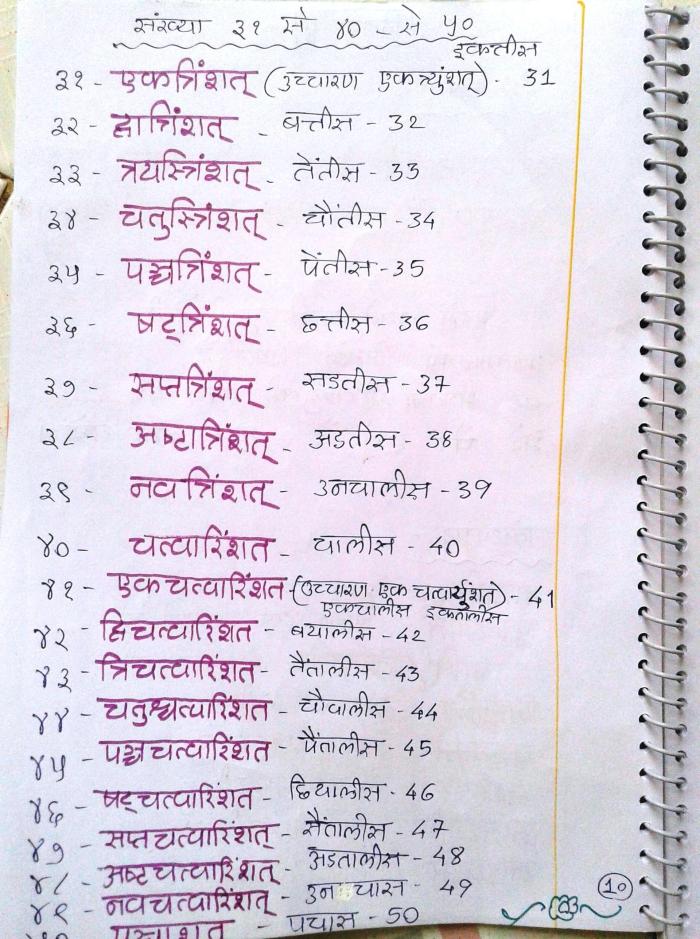 संख्या ३१ से ४० - से ५०
इकतीस
३१ - एकत्रिंशत् (उच्चारण एकत्र्युंशत्) - 31
३२ - द्वात्रिंशत् - बत्तीस - 32
३३ - त्रयस्त्रिंशत् - तेंतीस - 33
३४ - चतुस्त्रिंशत् - चौंतीस - 34
३५ - पञ्चत्रिंशत् - पेंतीस - 35
३६ - षट्त्रिंशत् - छत्तीस - 36
३७ - सप्तत्रिंशत् - सडतीस - 37
३८ - अष्टात्रिंशत् - अडतीस - 38
३९ - नवत्रिंशत् - उनचालीस - 39
४० - चत्वारिंशत - चालीस - 40
४१ - एकचत्वारिंशत - (उच्चारण एक चत्वार्युंशत) - 41
एकचालीस इकतालीस
४२ - द्विचत्वारिंशत - बयालीस - 42
४३ - त्रिचत्वारिंशत - तैंतालीस - 43
४४ - चतुश्चत्वारिंशत - चौवालीस - 44
४५ - पञ्चचत्वारिंशत - पैंतालीस - 45
४६ - षट्चत्वारिंशत - छियालीस - 46
४७ - सप्तचत्वारिंशत् - सैंतालीस - 47
४८ - अष्टचत्वारिंशत् - अडतालीस - 48
४९ - नवचत्वारिंशत् - उनचास - 49
५० - पञ्चाशत् - पचास - 50
10